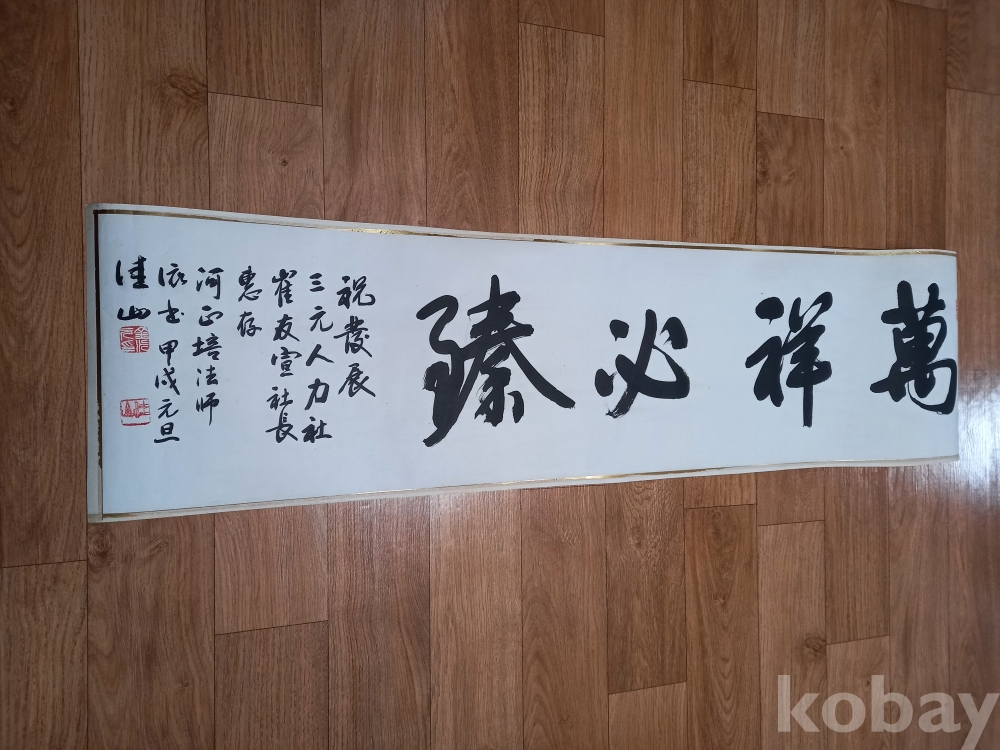 萬祥必臻
祝發展
三元人力社
崔友宣社長
惠存
河正培法師
依書 甲戌元旦
佳山
kobay